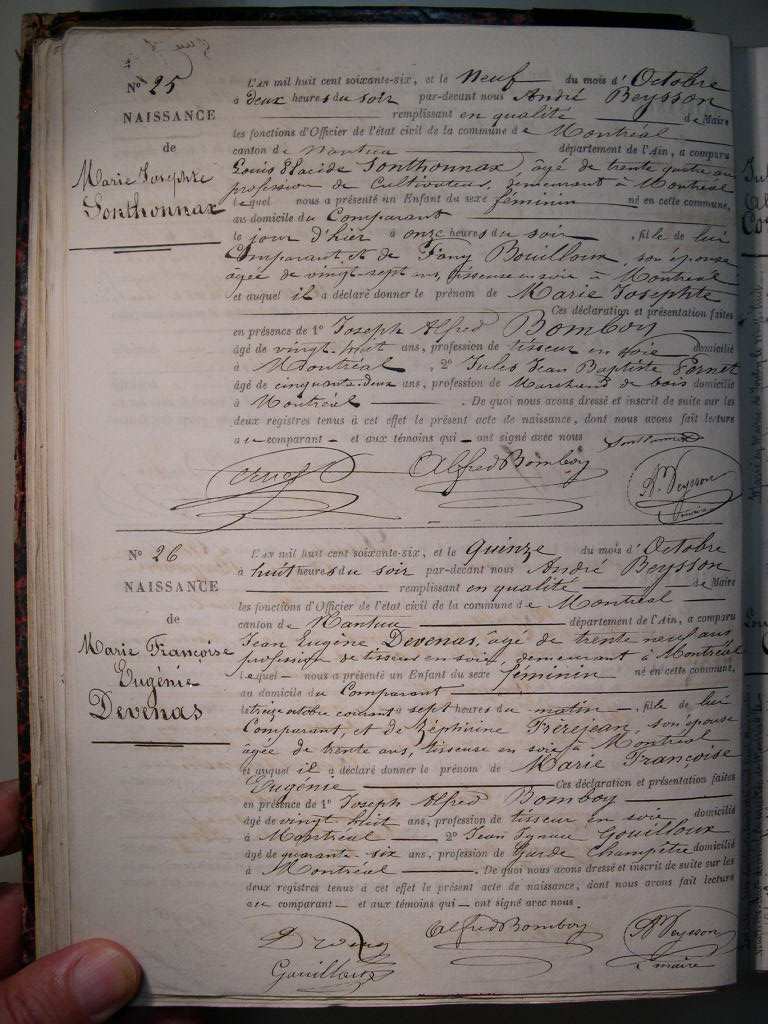 N° 25
NAISSANCE
de
Marie Josephte
Sonthonnax
L'AN mil huit cent soixante-six, et le Neuf du mois d'Octobre
à deux heures du soir par-devant nous André Beysson
remplissant en qualité de Maire
les fonctions d'Officier de l'état civil de la commune de Montréal
canton de Nantua département de l'Ain, a comparu
Louis Placide Sonthonnax, âgé de trente quatre ans
profession de Cultivateur, demeurant à Montréal
lequel nous a présenté un Enfant du sexe féminin né en cette commune,
au domicile du Comparant
le jour d'hier à onze heures du soir, fille de lui
Comparant, et de Fany Bouilloux, son épouse
âgée de vingt-sept ans, tisseuse en soie à Montréal
et auquel il a déclaré donner le prénom de Marie Josephte
Ces déclaration et présentation faites
en présence de 1° Joseph Alfred Bomboy
âgé de vingt-huit ans, profession de tisseur en soie domicilié
à Montréal, 2° Jules Jean Baptiste
âgé de cinquante-deux ans, profession de Marchand de bois domicilié
à Montréal. De quoi nous avons dressé et inscrit de suite sur les
deux registres tenus à cet effet le présent acte de naissance, dont nous avons fait lecture
au comparant et aux témoins qui ont signé avec nous
Sonthonnax
Alfred Bomboy
A. Beysson
N° 26
NAISSANCE
de
Marie Françoise
Eugénie
Devenas
L'AN mil huit cent soixante-six, et le Quinze du mois d'Octobre
à huit heures du soir par-devant nous André Beysson
remplissant en qualité de Maire
les fonctions d'Officier de l'état civil de la commune de Montréal
canton de Nantua département de l'Ain, a comparu
Jean Eugène Devenas, âgé de trente neuf ans
profession de tisseur en soie, demeurant à Montréal
lequel nous a présenté un Enfant du sexe féminin né en cette commune,
au domicile du Comparant
le treize octobre courant à sept heures du matin, fille de lui
Comparant, et de Zéphirine Frèrejean, son épouse
âgée de trente ans, tisseuse en soie à Montréal
et auquel il a déclaré donner le prénom de Marie Françoise
Eugénie Ces déclaration et présentation faites
en présence de 1° Joseph Alfred Bomboy
âgé de vingt huit ans, profession de tisseur en soie domicilié
à Montréal 2° Jean Ignace Gouilloux
âgé de quarante-six ans, profession de Garde Champêtre domicilié
à Montréal. De quoi nous avons dressé et inscrit de suite sur les
deux registres tenus à cet effet le présent acte de naissance, dont nous avons fait lecture
au comparant et aux témoins qui ont signé avec nous.
Alfred Bomboy
A. Beysson
maire
Gouilloux